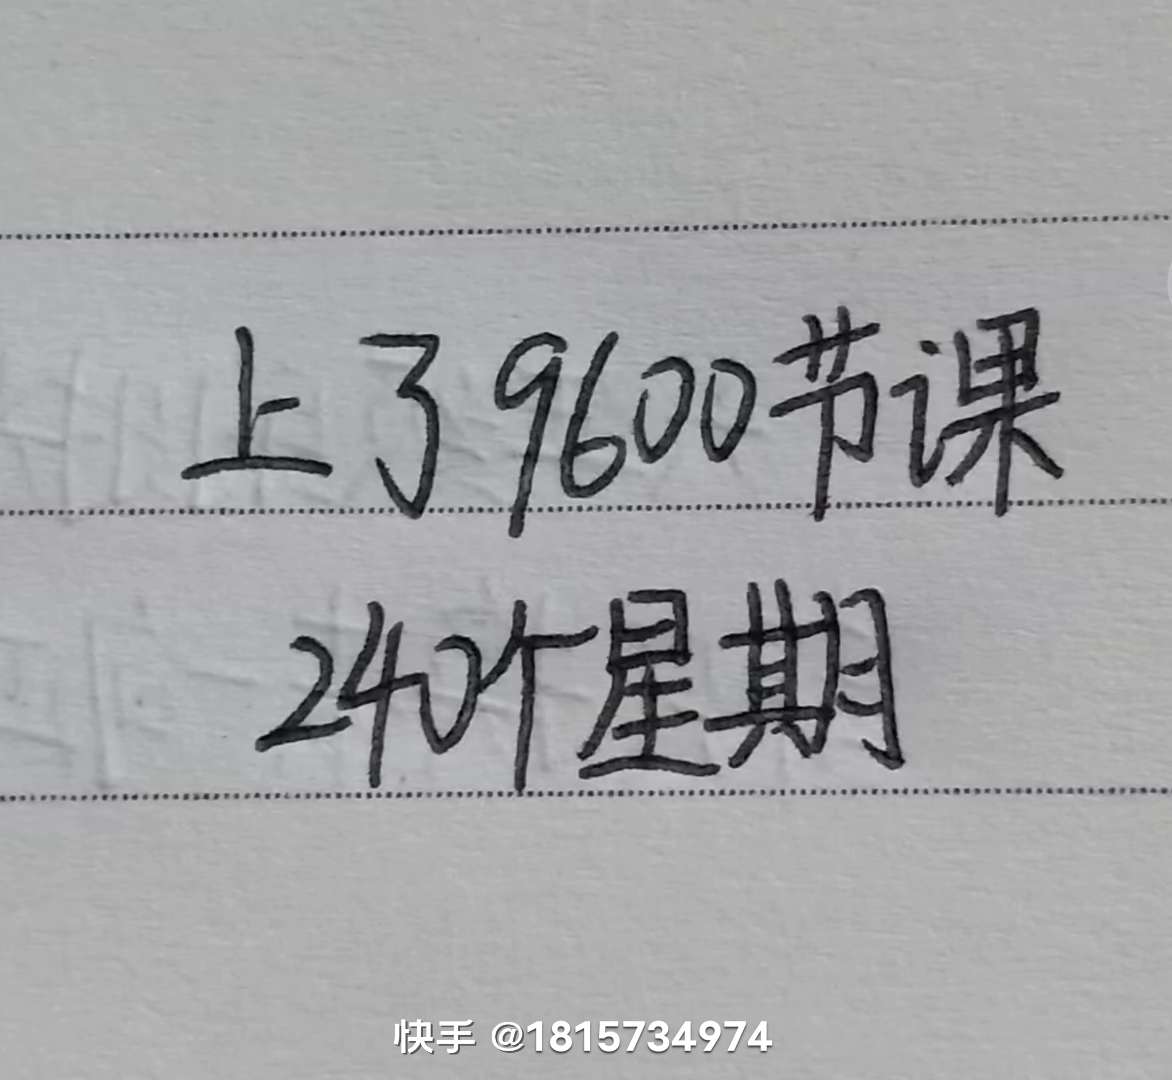 上了9600节课
240个星期
快手 @1815734974